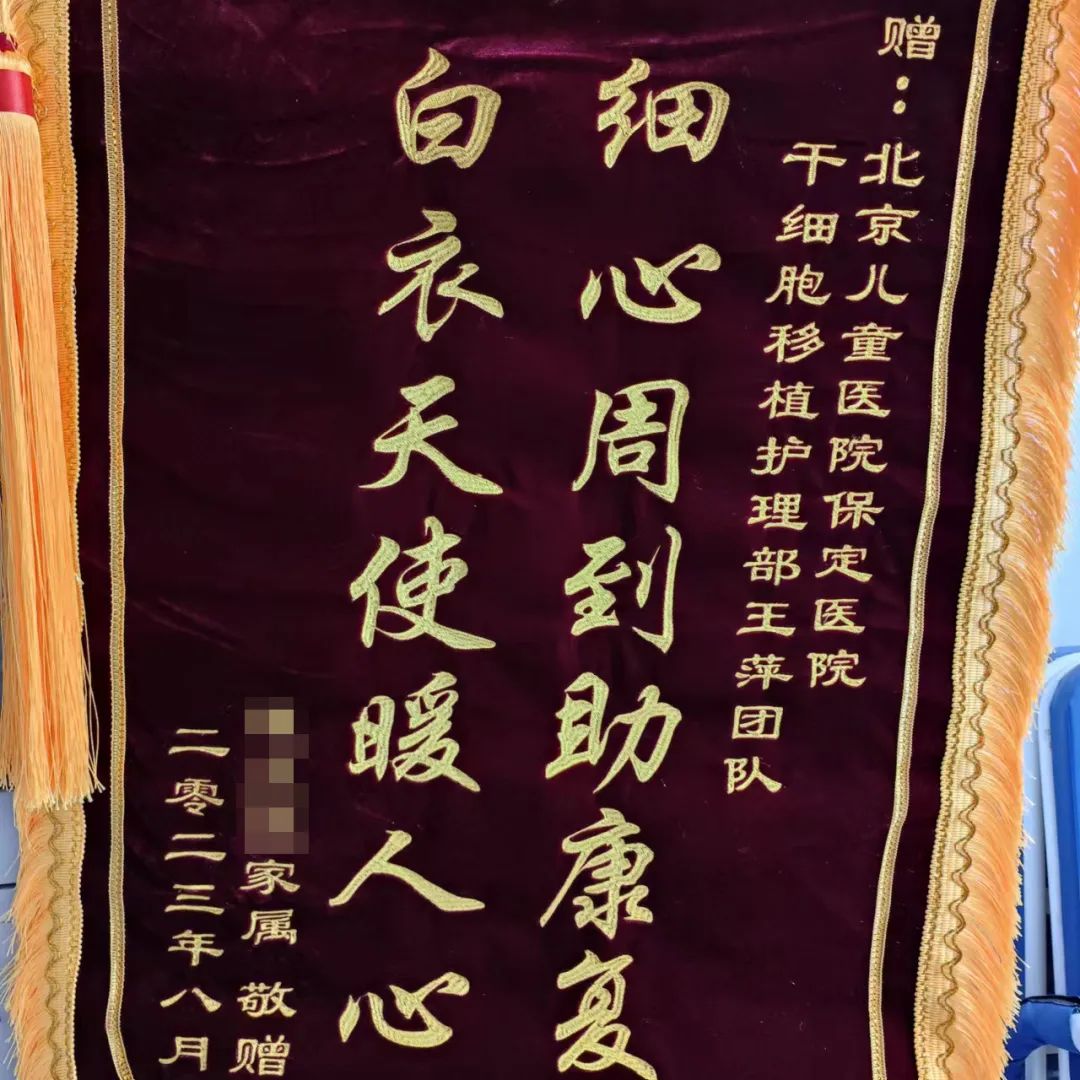 赠：北京儿童医院保定医院
干细胞移植护理部王萍团队
细心周到助康复
白衣天使暖人心
家属 敬赠
二零二三年八月